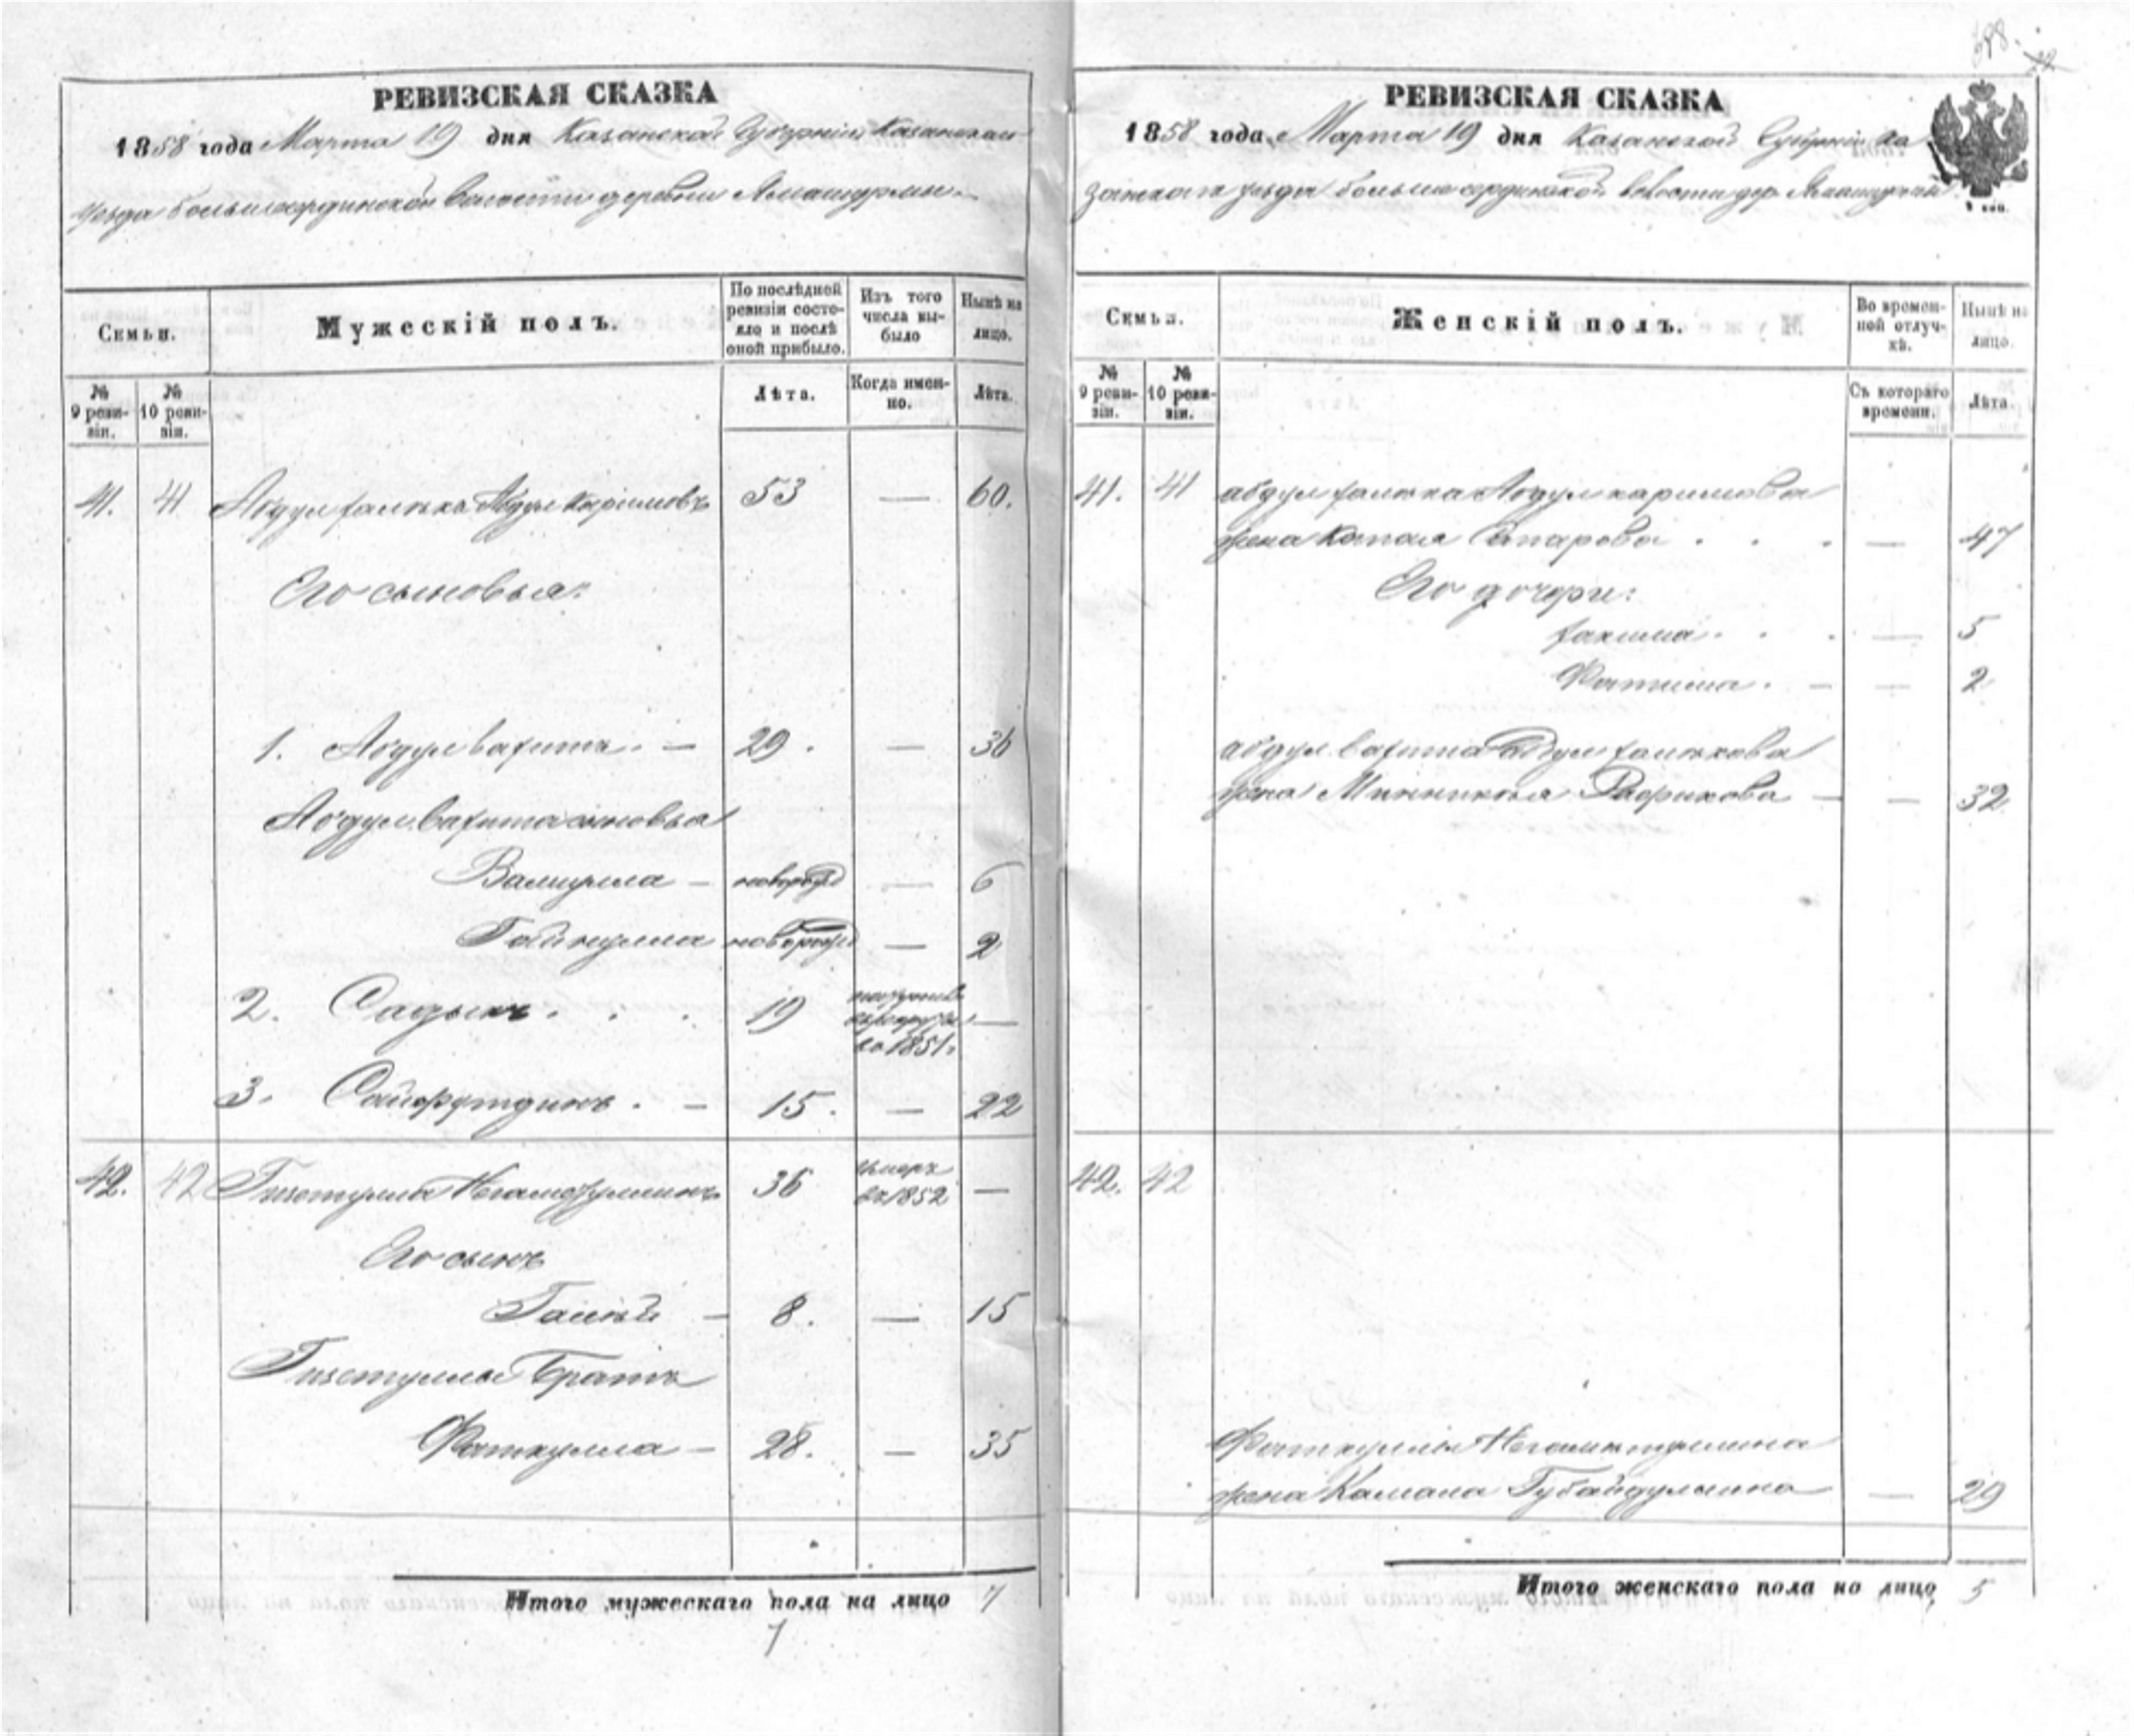 РЕВИЗСКАЯ СКАЗКА
1858 года Марта 19 дня Казанской Губернiи Казанскаго
уезда больше сординской волости деревни Алмашурмы
Семьи.
Мужескiй полъ.
По послѣдней ревизiи состо-
яло и послѣ
оной прибыло.
Изъ того
числа вы-
было
Нынѣ на
лицо.
№
9 реви-
зiи.
№
10 реви-
зiи.
Лѣта.
Когда имен-
но.
Лѣта.
41. 41 Абдулхаликъ Абдулкаримовъ 53 — 60.
Его сыновья:
1. Абдулвахитъ . — 29 . — 36
Абдулвахита сыновья
Валиулла — новорожд — 6
Гайнулла новорожд — 2
2. Садыкъ . . . 19
въ рекруты —
въ 1851.
3. Сайфутдинъ . — 15 . — 22
42. 42 36 умеръ
въ 1852 —
Его сынъ
— 8. — 15
братъ
Фаткулла — 28. — 35
Итого мужескаго пола на лицо 7
7
РЕВИЗСКАЯ СКАЗКА
1858 года Марта 19 дня Казанской Губернiи Ка
занскаго уезда больше сординской волости дер. Алмашурмы
Семьи.
Женскiй полъ.
Во времен-
ной отлуч-
кѣ.
Нынѣ на
лицо.
№
9 реви-
зiи.
№
10 реви-
зiи.
Съ котораго
времени.
Лѣта.
41. 41 абдулхалика Абдулкаримова
жена Сатарова . . . — 47
Его дочери:
Хакима . . . — 5
Фатима . — — 2
абдулвахита абдулхаликова
жена Рафикова — — 32
42. 42
Фаткуллы
жена Камала Губайдуллина — 29
Итого женскаго пола на лицо, 5